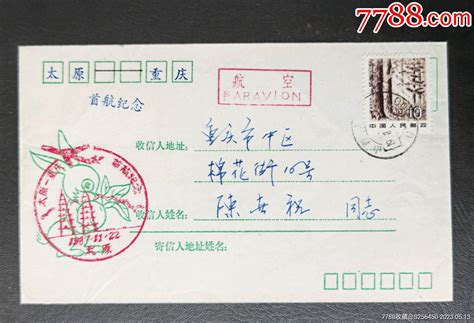 7788.com
太原——重庆
首航纪念
航空
PARAVION
中国人民邮政
收信人地址:
重庆市中区
棉花街10号
收信人姓名:
同志
寄信人地址姓名:
首航纪念
1987.11.22
太原
7788收藏@8256450 2023.05.13